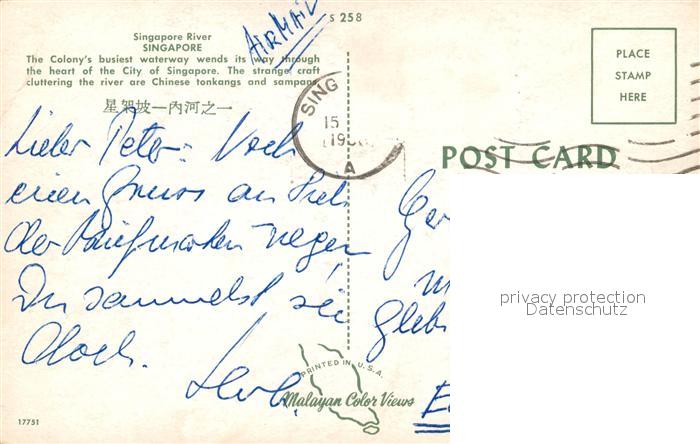 S 258
AIRMAIL
Singapore River
SINGAPORE
The Colony's busiest waterway wends its way through
the heart of the City of Singapore. The strange craft
cluttering the river are Chinese tonkangs and sampans.
星架坡一內河之一
PLACE
STAMP
HERE
SING
15
A
POST CARD
Lieber Peter: Noch
einen Gruss an Dich
der Briefmarken wegen
Du sammelst sie
doch.
privacy protection
Datenschutz
PRINTED IN U.S.A.
Malayan Color Views
17751